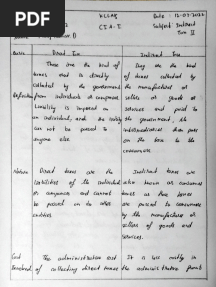 PDF
KLLAY
Date : 12-07-2022
CIA-I
Subject: Indirect
Tax II
Basis
Direct Tax
Indirect Tax
These are the kind of
They are the kind
taxes that is directly
of taxes collected by
collected by the government
the manufacturers or
Definition
from individuals or companies
sellers of goods or
Liability is imposed on
services and paid to
an individual and the liability
the government, the
can not be passed to
intermediaries then pass
anyone else
on the tax to the
consumers.
Nature
Direct taxes are the
Indirect taxes are
liabilities of the individual
also known as consumer
or companies and cannot
taxes as these taxes
be passed on to other
are passed to consumers
entities.
by the manufacturer or
sellers of goods and
services.
Cost
The administration cost
It is less costly in
Involved
of collecting direct taxes
the administrative front